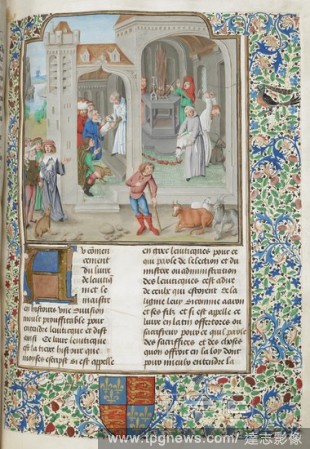 u comen
cement
du liure
de leuitiq
met le
maistre
en histoires vne diuision
moult prouffitable pour
entendre leuitique et dist
ainsi De leuitique
est la tierce histoire que
moyses escript si est appelle
en grec leuitiques pour ce
qui parle de selection et du
mistere ou administration
des leuitiques cest adire
de ceulx qui estoient de la
lignie leur seremonie aaron
et ses filz et si est appelle
liure en latin offertores ou
sacrifieur pour ce quil parle
des sacrifices et des choses
quon offroit en la loy dont
pour mieulx entendre la
www.tpgnews.com/ 達志影像